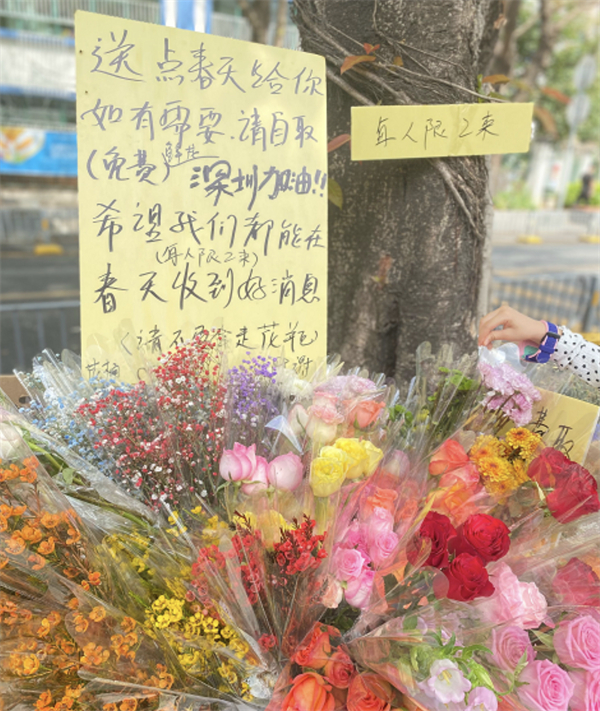 送点春天给你
如有需要.请自取
(免费)鲜花 深圳加油!!
希望我们都能在
(每人限2束)
春天收到好消息
(请不要拿走花瓶)
谢
每人限2束
取